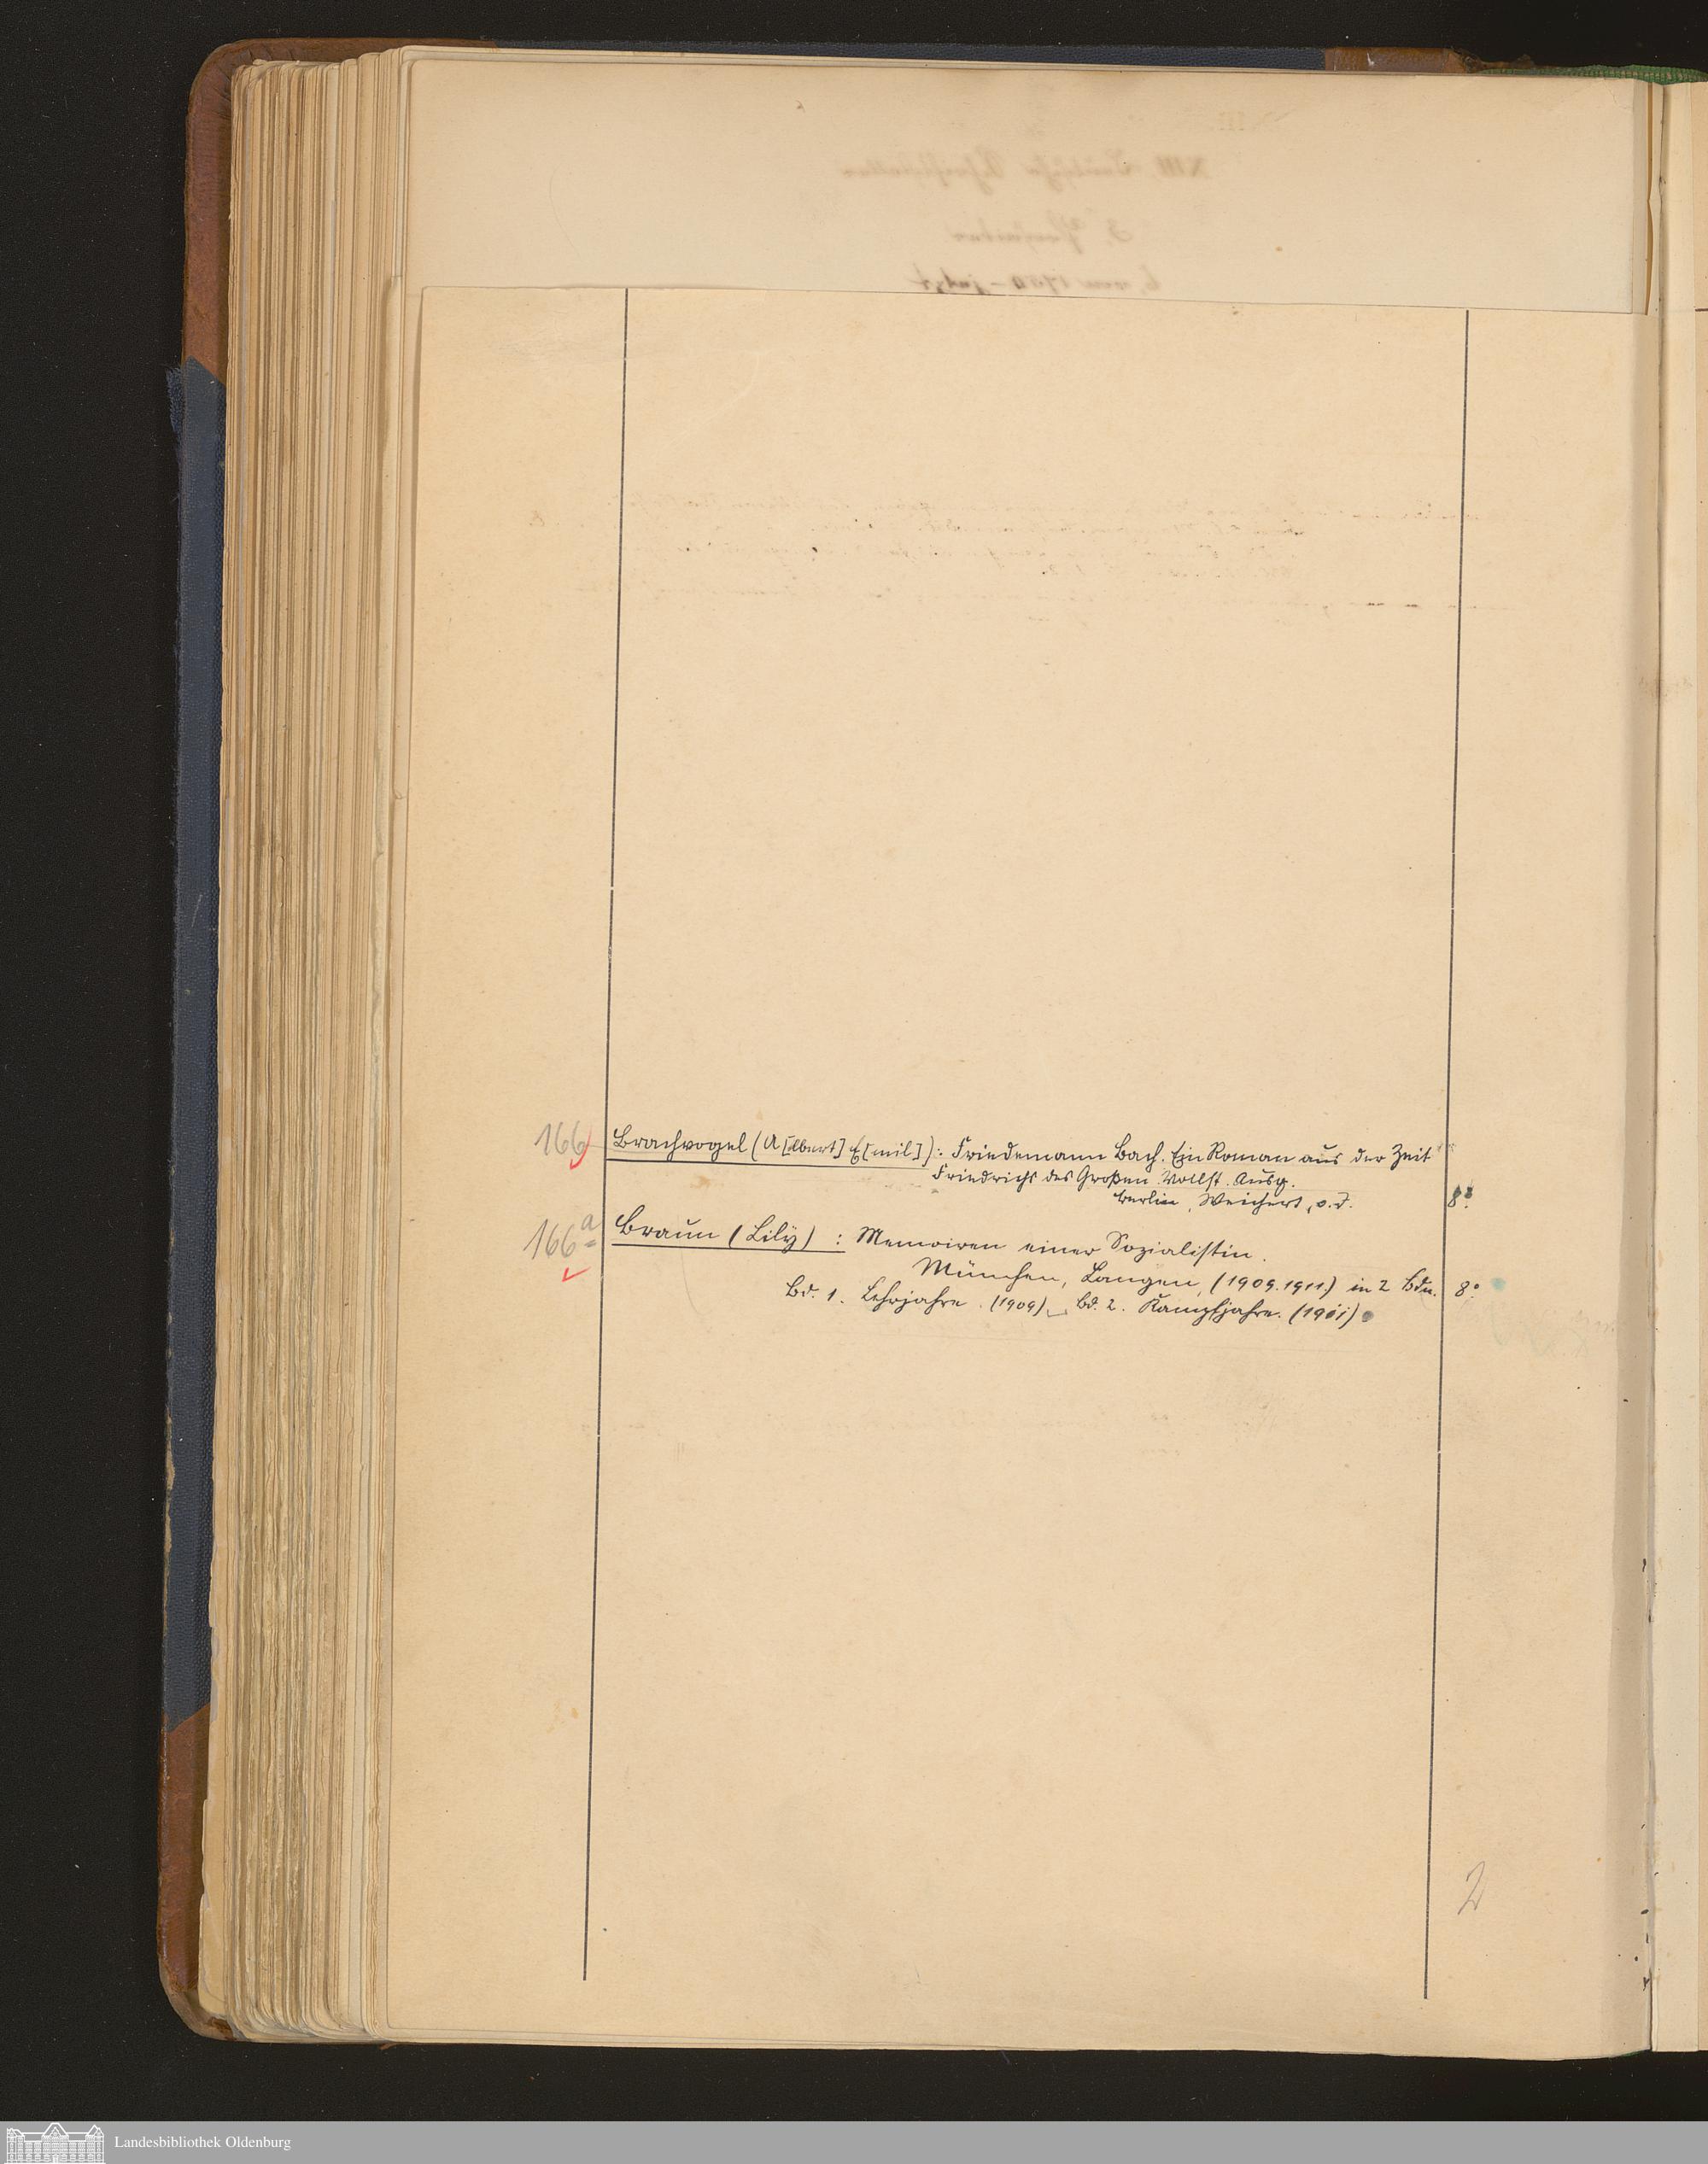 166 Brachvogel (A[lbert] E[mil]): Friedemann Bach. Ein Roman aus der Zeit
Friedrichs des Großen. Vollst. Ausg.
Berlin, Weichert, o. J. 8°
166a Braun (Lily) : Memoiren einer Sozialistin.
München, Langen, (1909. 1911.) in 2 Bdn. 8°
Bd. 1. Lehrjahre. (1909) Bd. 2. Kampfjahre. (1911)
2
Landesbibliothek Oldenburg